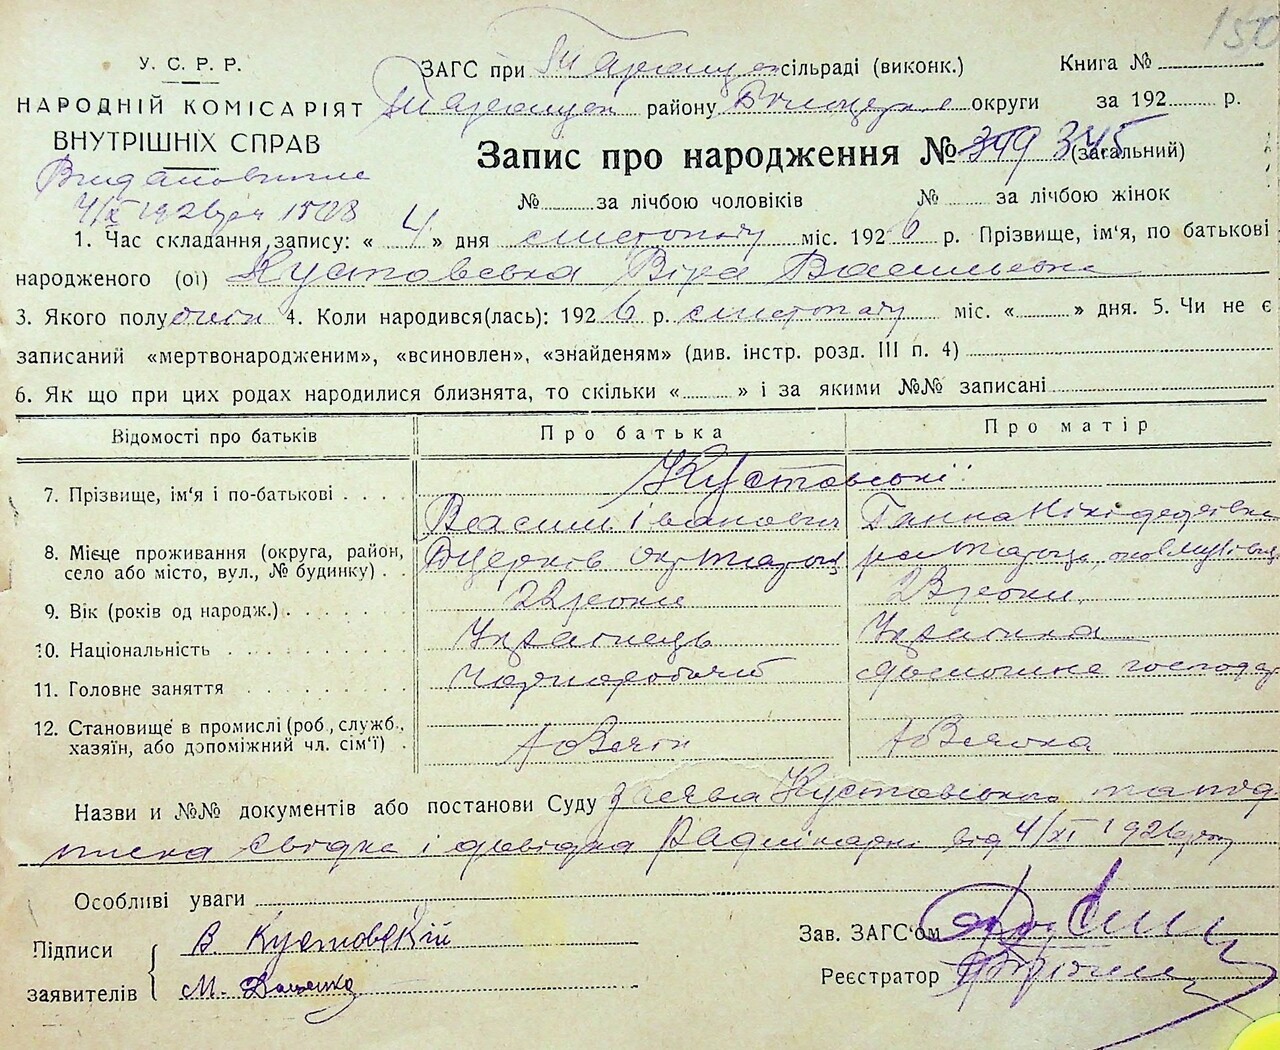 150
У. С. Р. Р.
НАРОДНІЙ КОМІСАРІЯТ
ВНУТРІШНІХ СПРАВ
ЗАГС при Таращ сільраді (виконк.) Книга №
Таращан району Білоцерк округи за 192 р.
Запис про народження № 319 345 (загальний)
4/XI 1926 1508
№ за лічбою чоловіків № за лічбою жінок
1. Час складання запису: « 4 » дня листопаду міс. 1926 р. Прізвище, ім'я, по батькові
народженого (ої) Кустовська Віра Васильевна
3. Якого полу жіноч 4. Коли народився(лась): 1926 р. листопаду міс. « » дня. 5. Чи не є
записаний «мертвонародженим», «всиновлен», «знайденям» (див. інстр. розд. III п. 4)
6. Як що при цих родах народилися близнята, то скільки « » і за якими №№ записані
Відомості про батьків Про батька Про матір
7. Прізвище, ім'я і по-батькові Кустовські
Василь Іванович Ганна Нікіфорівна
8. Місце проживання (округа, район,
село або місто, вул., № будинку) Бцерків окр Таращ
9. Вік (років од народж.) 22 роки 23 роки
10. Національність Українець Українка
11. Головне заняття Чорноробочий Домашнє господар
12. Становище в промислі (роб., служб.,
хазяїн, або допоміжний чл. сім'ї)
Назви и №№ документів або постанови Суду заява Кустовського та під
писка свідка і довідка від 4/XI 1926 року
Особливі уваги
Підписи В. Кустовській Зав. ЗАГС'ом
заявителів М. Даценко Реєстратор